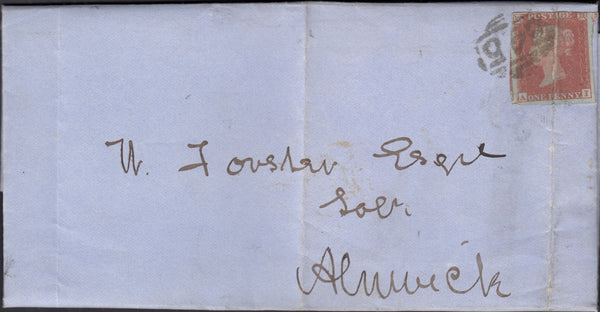 POSTAGE
ONE PENNY
W. Forster Esqre
Solr.
Alnwick